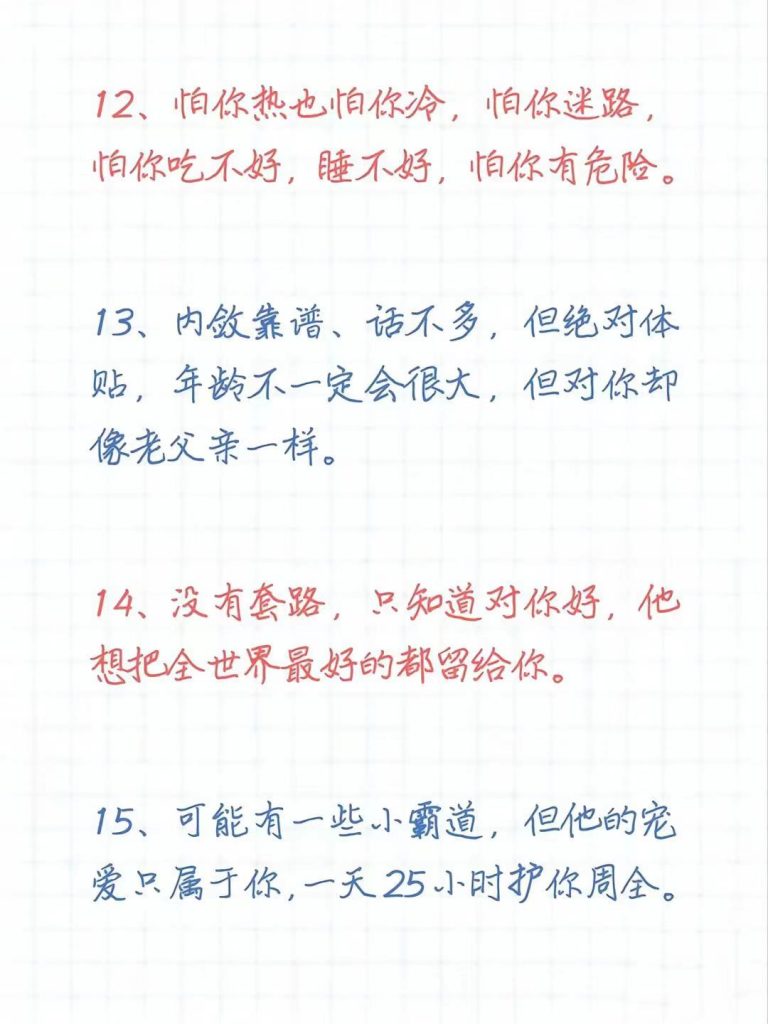 12、怕你热也怕你冷，怕你迷路，
怕你吃不好，睡不好，怕你有危险。
13、内敛靠谱、话不多，但绝对体
贴，年龄不一定会很大，但对你却
像老父亲一样。
14、没有套路，只知道对你好，他
想把全世界最好的都留给你。
15、可能有一些小霸道，但他的宠
爱只属于你，一天25小时护你周全。